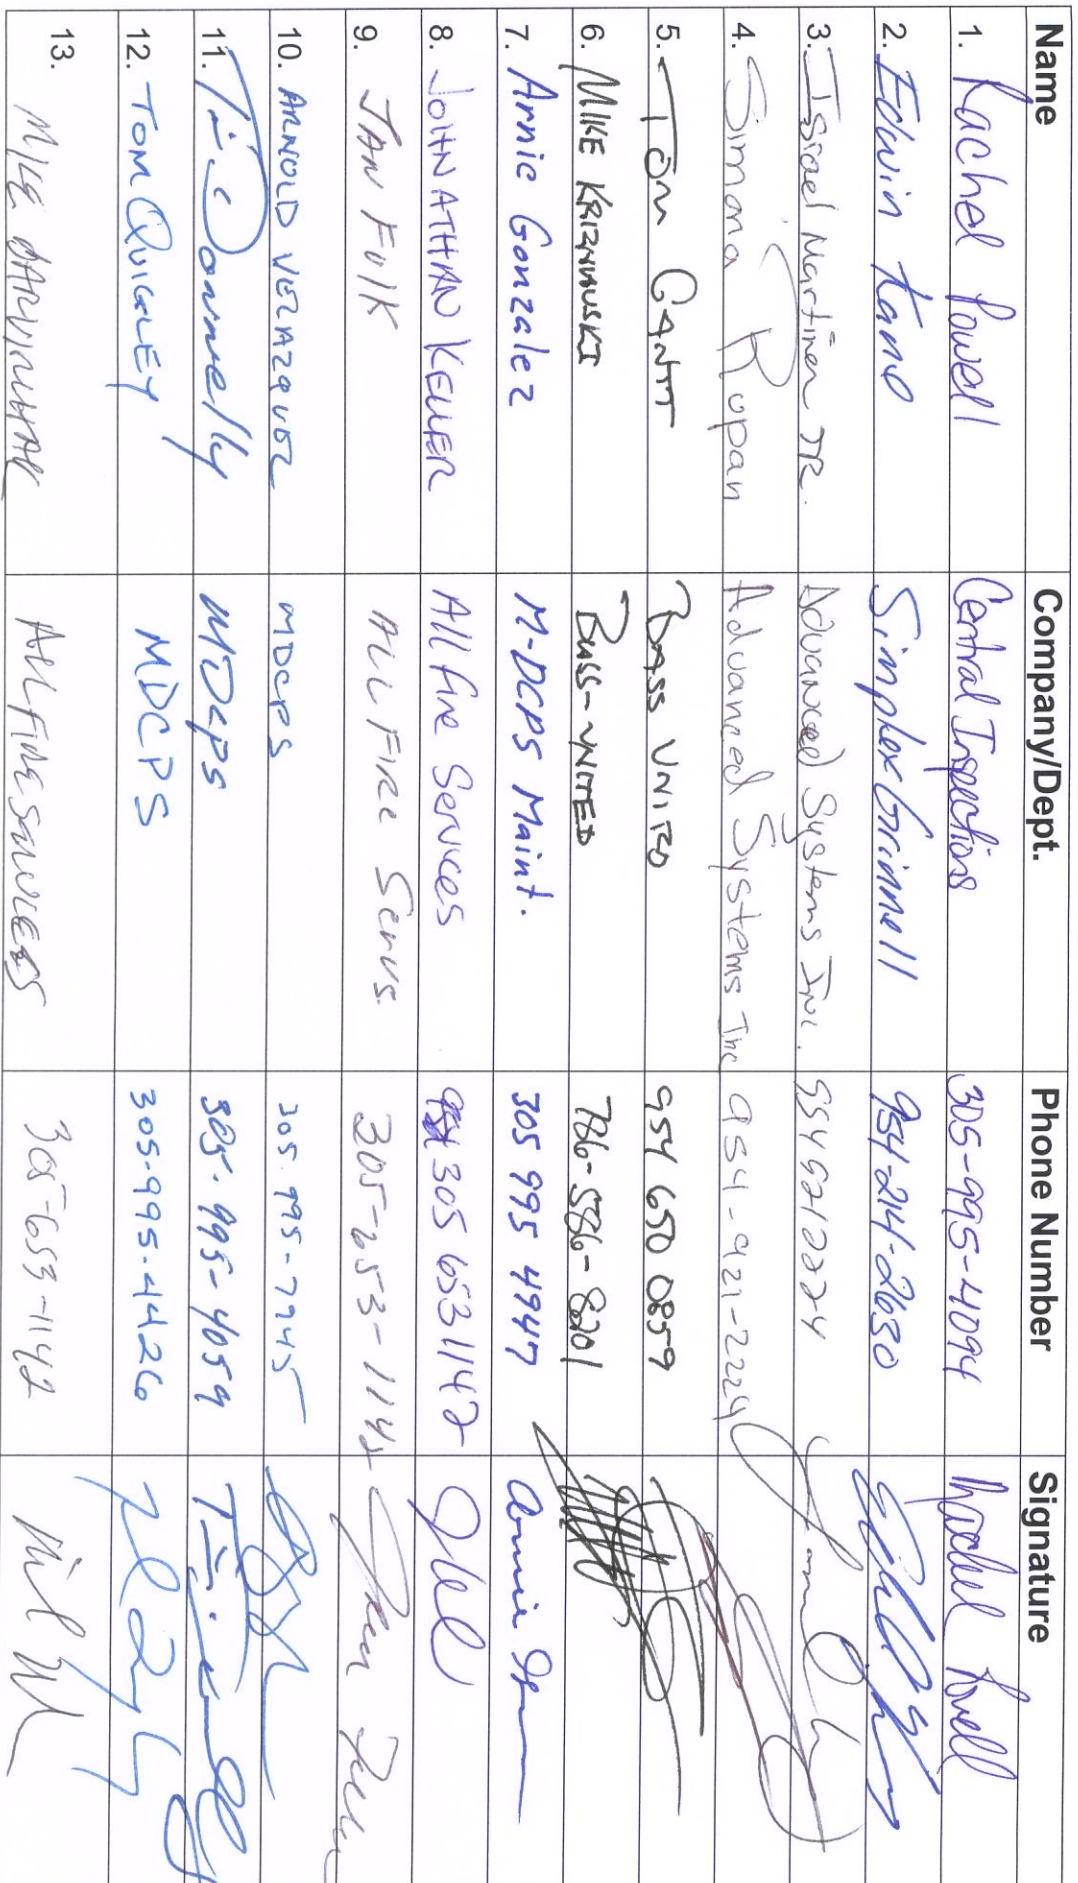 Name Company/Dept. Phone Number Signature
1. Rachel Powell Central Inspections 305-995-4094 Rachel Powell
2. Edwin Kane SimplexGrinnell 954-214-2630
3. Israel Martinez JR. Advanced Systems Inc. 9549212224
4. Simona Ropan Advanced Systems Inc 954-921-2224
5. Tom GANTT BASS UNITED 954 650 0859
6. MIKE BASS-UNITED 786-586-8201
7. Arnie Gonzalez M-DCPS Maint. 305 995 4947
8. JOHNATHAN KELLER All Fire Services 305 653 1142
9. JAN FULK ALL FIRE Servs. 305-653-1142
10. ARNOLD VELAZQUEZ MDCPS 305.995-7945
11. Tim Donnelly MDCPS 305-995-4059
12. TOM QUIGLEY MDCPS 305-995-4426
13. MIKE ALL FIRE SERVICES 305-653-1142